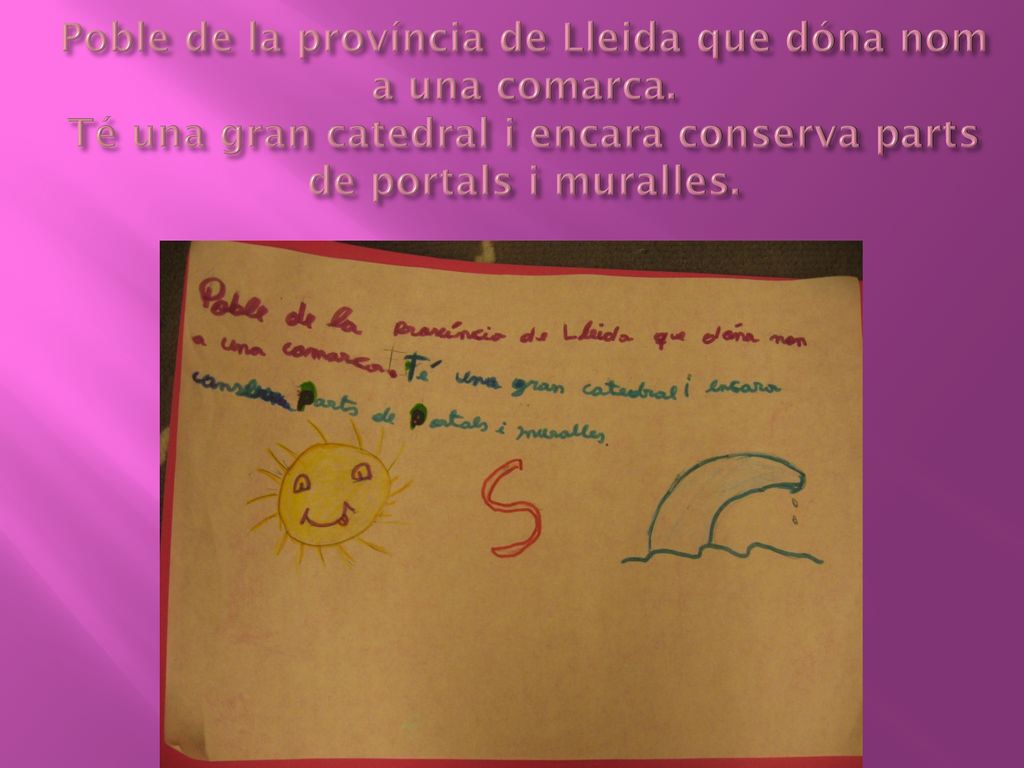 Poble de la província de Lleida que dóna nom
a una comarca.
Té una gran catedral i encara conserva parts
de portals i muralles.
Poble de la província de Lleida que dóna nom
a una comarca. Té una gran catedral i encara
conserva Parts de Portals i muralles.
S